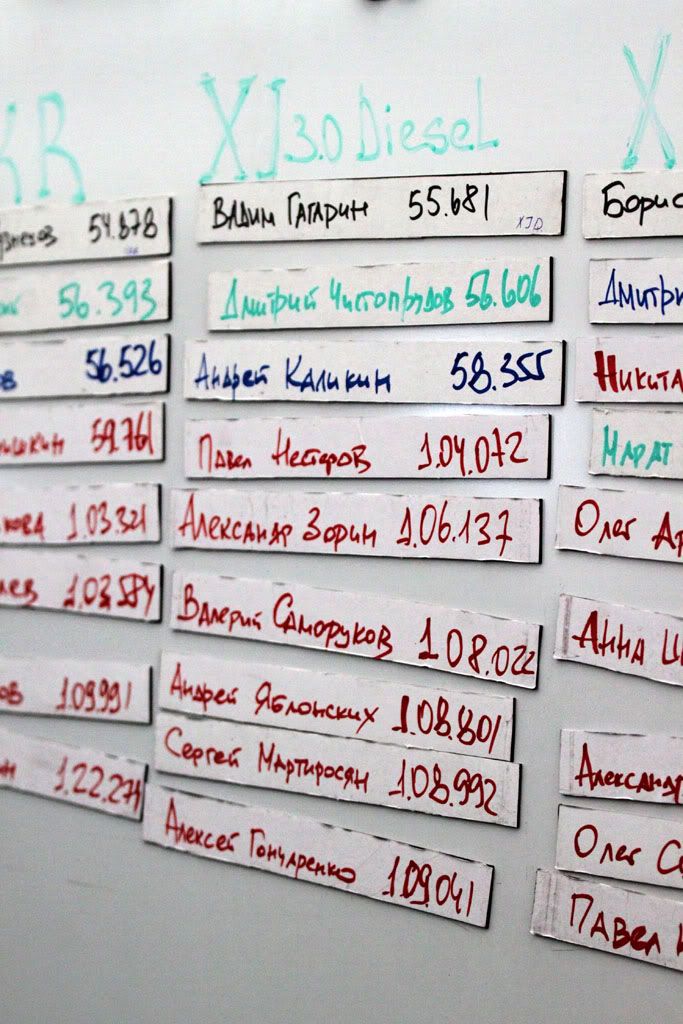 KR
54.878
56.393
56.526
59.761
1.03.321
1.03.584
1.09.991
1.22.271
XJ 3.0 Diesel
Вадим Гагарин 55.681
XJD
Дмитрий Чистопрудов 56.606
Андрей Каликин 58.355
Павел Нестеров 1.04.072
Александр Зорин 1.06.137
Валерий Саморуков 1.08.022
Андрей Яблонских 1.08.801
Сергей Мартиросян 1.08.992
Алексей Гончаренко 1.09.041
X
Борис
Дмитри
Никита
Марат
Олег
Анна
Александр
Олег
Павел